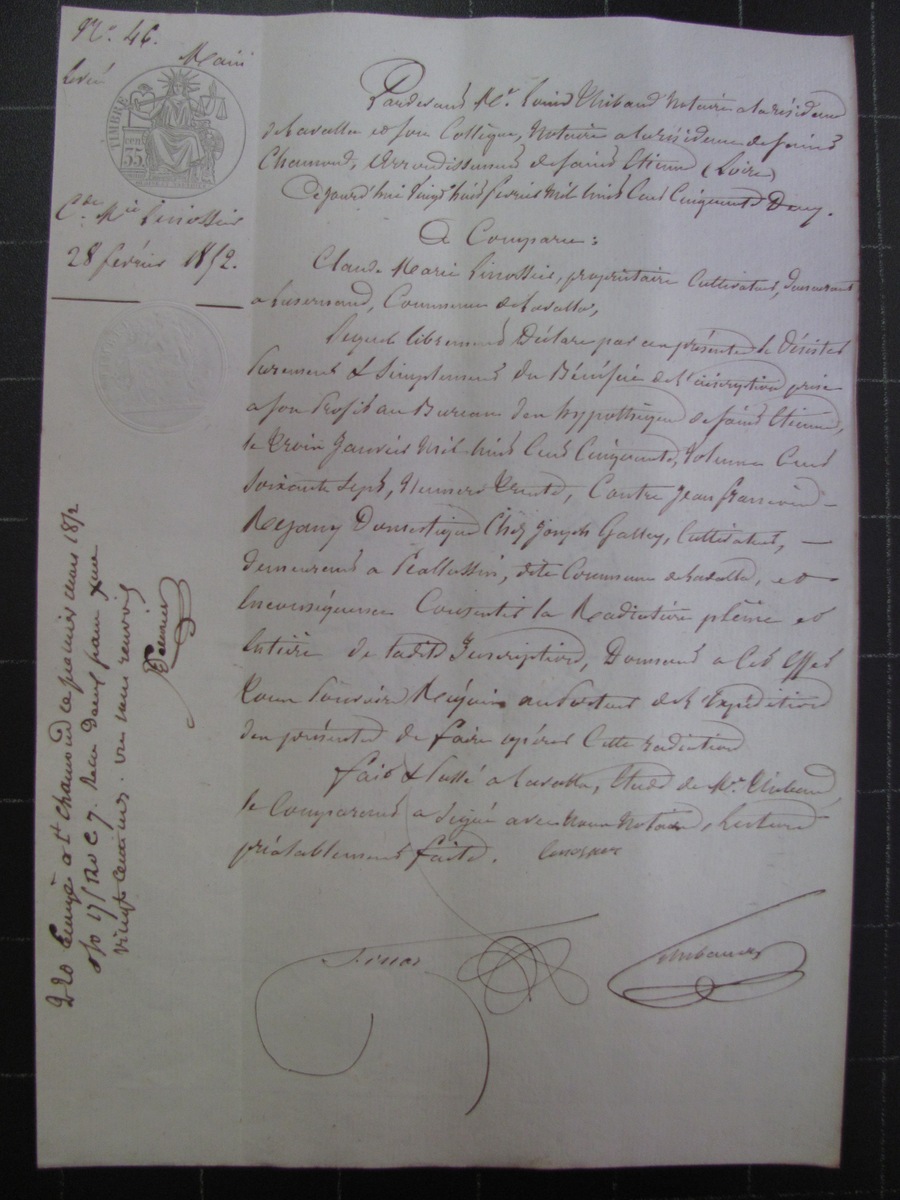 N.° 46.
Main
Levée
TIMBRE
35
Cde Mie Linossier
28 février 1852.
Pardevant Me. Louis Thibaud Notaire a la résidence
de Lavalla et son Collègue, Notaire a la résidence de Saint
Chamond, arrondissement de Saint Etienne (Loire)
Cejourd'hui vingt huit février mil huit cent cinquante deux.
A Comparu :
Claude Marie Linossier, propriétaire Cultivateur, demeurant
a Luzernaud, Commune de Lavalla,
Lequel librement Déclare par ces présentes se Désister
Purement & Simplement du Bénéfice de l'inscription prise
a son Profit au Bureau des hypothèques de Saint Etienne,
le trois Janvier mil huit cent Cinquante, Volume Cent
soixante sept, Numéro trente, Contre Jean francois
Domestique Chez Joseph Galley, Cultivateur,
demeurant a dite Commune de Lavalla, et
Enconséquence Consentir la Radiation pleine et
Entière de ladite Inscription, Donnant a Cet Effet
tous Pouvoirs Requis au Porteur de l'Expédition
des présentes de faire opérer Cette radiation
fait & Passé a Lavalla, Etude de Me. Thibaud,
le Comparant a Signé avec Nous Notaires, Lecture
préalablement faite. Linossier
Finas
Thibaud
220 Enregé a St Chamond le premier mars 1852
fo 175 Ro C 7. Recu deux francs
vingt centimes. un mot renvoi